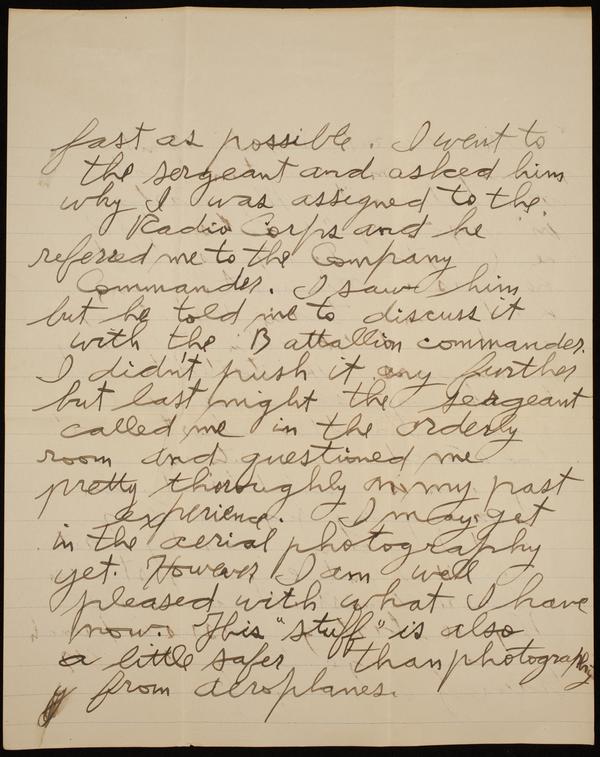 fast as possible. I went to
the sergeant and asked him
why I was assigned to the
Radio Corps and he
refered me to the Company
Commander. I saw him
but he told me to discuss it
with the Battallion commander.
I didn't push it any further
but last night the sergeant
called me in the orderly
room and questioned me
pretty thoroughly on my past
experience. I may get
in the aerial photography
yet. However I am well
pleased with what I have
now. This "stuff" is also
a little safer than photographing
from aeroplanes.